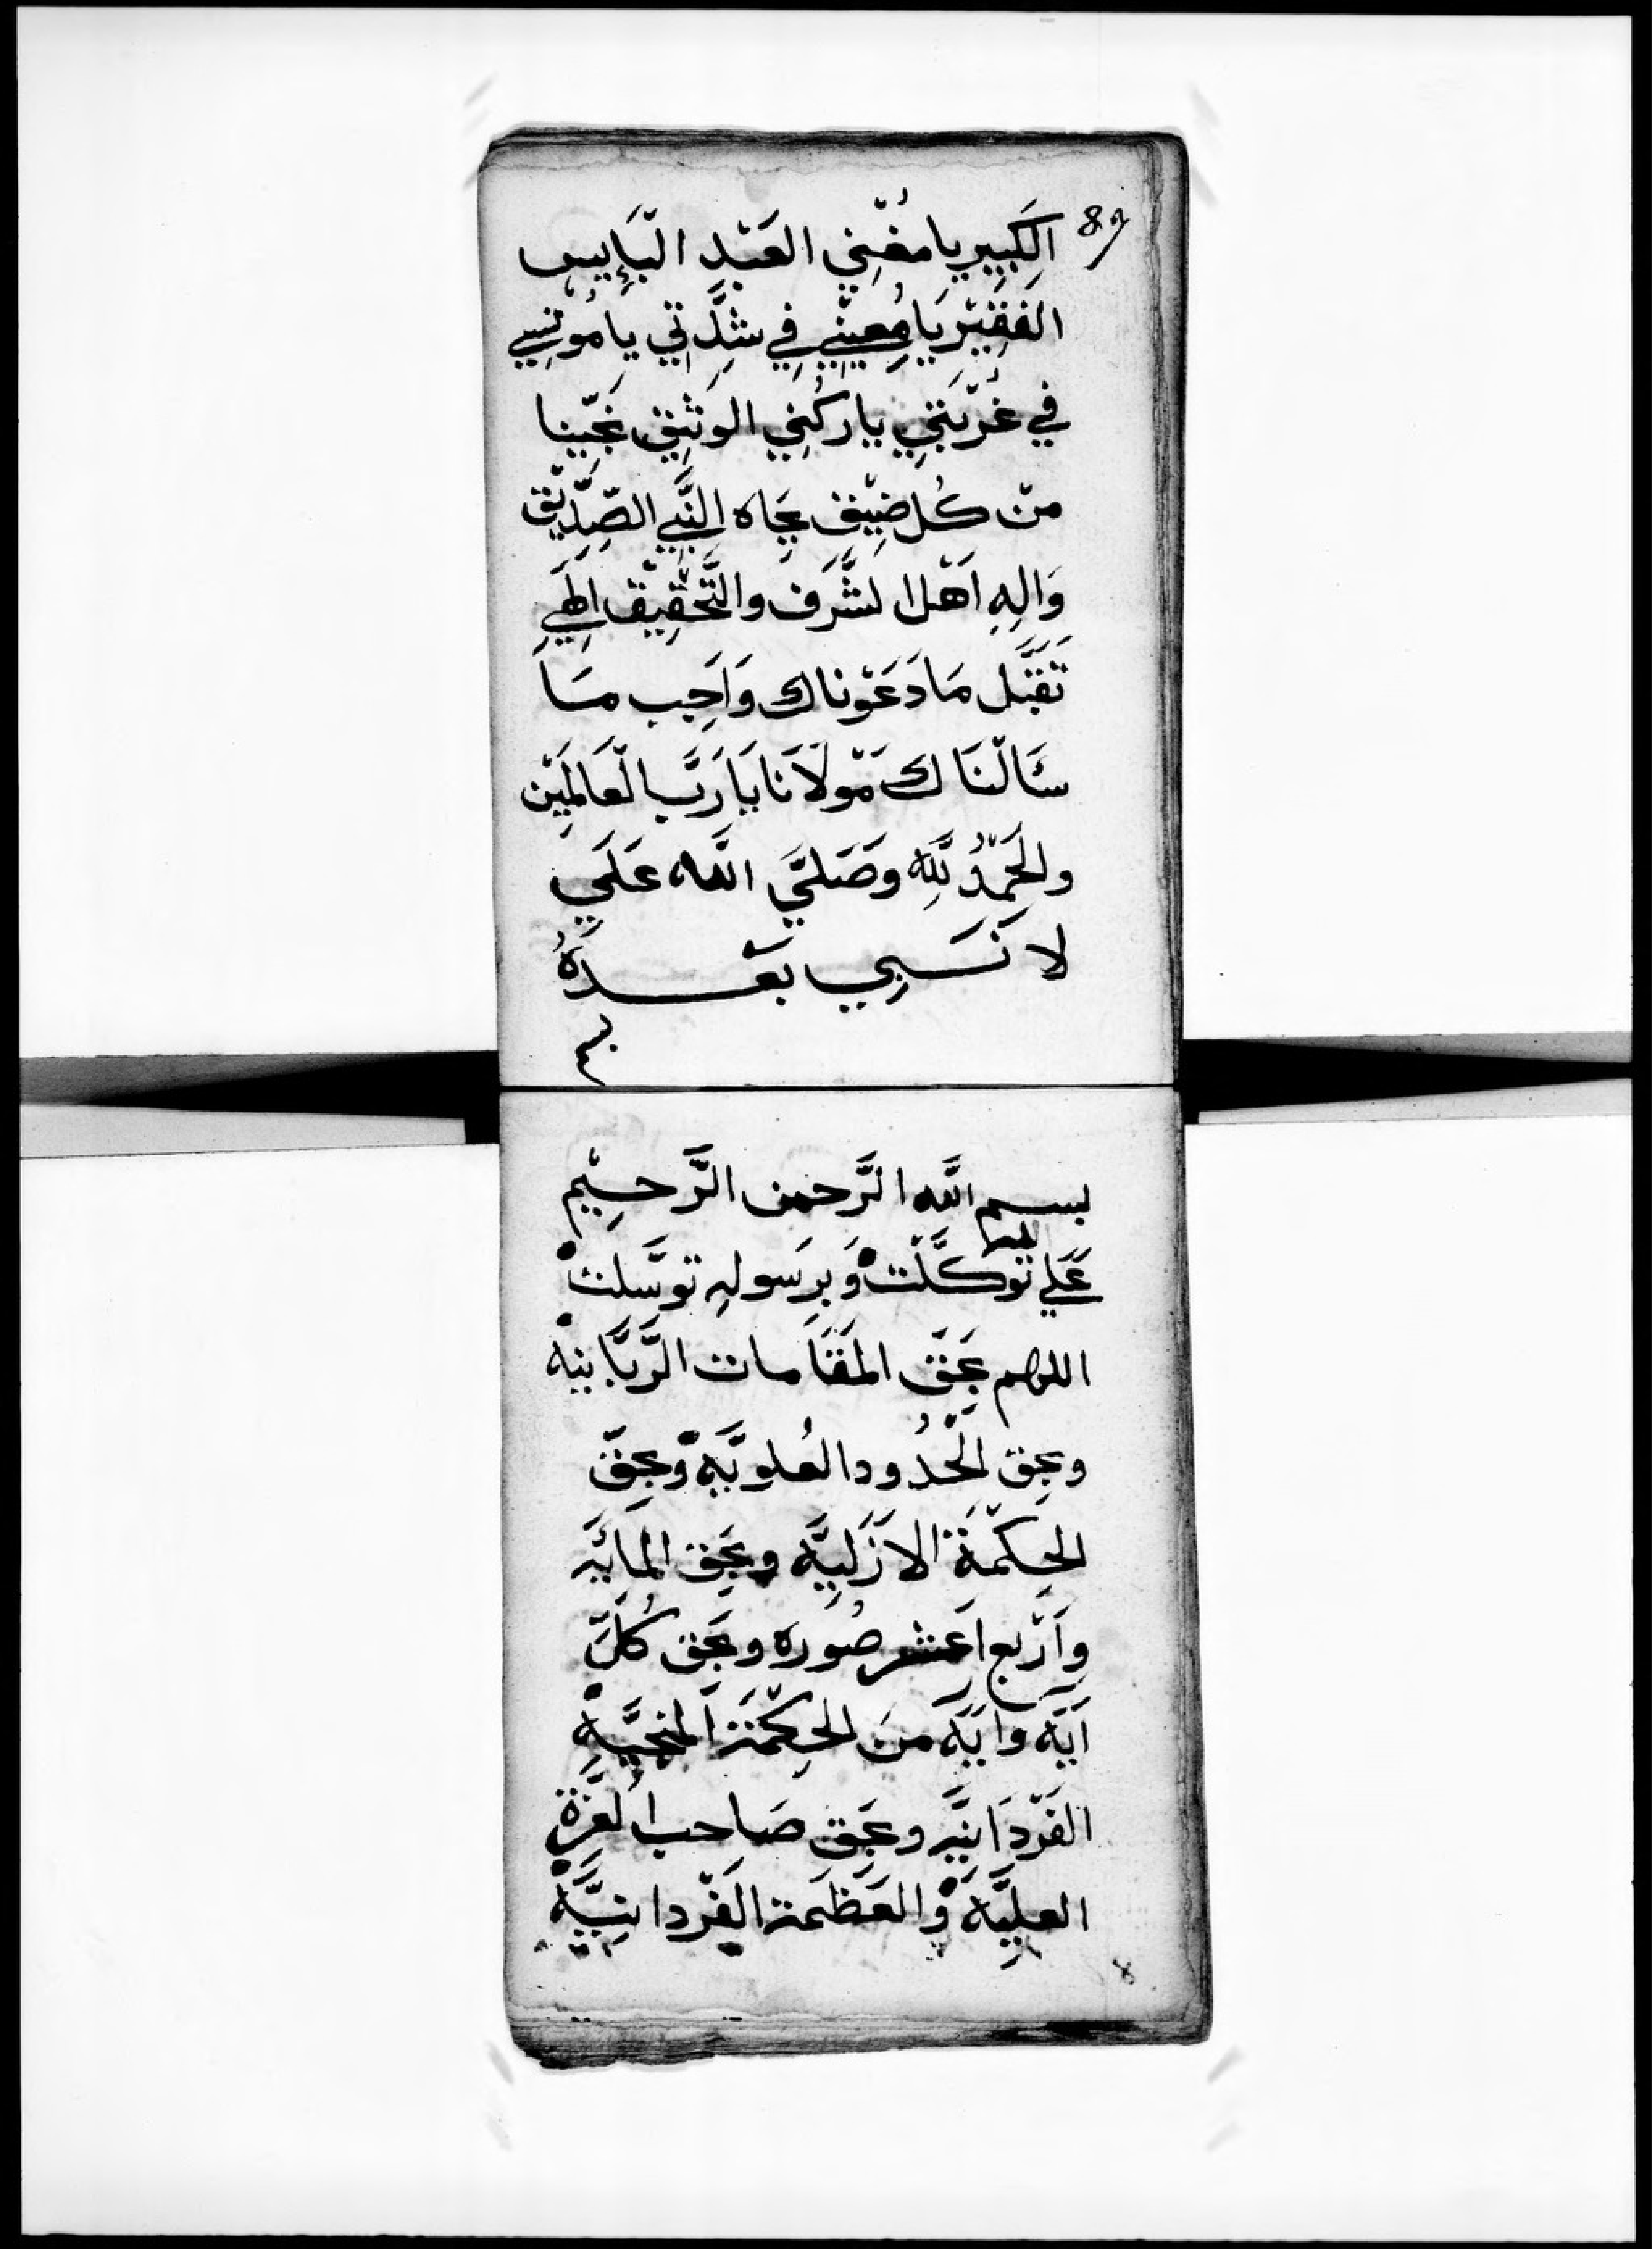 89
الكَبِيرِ يا مُغْنِي العَبْدِ الْبَإِيسِ
الفَقِيْرِ يَا مُعِيْنِي فِي شِدَّتِي يا مُونِسِي
في غُرْبَتِي يا رُكْنِي الوَثِيْقِ نَجِّينا
مِنْ كُل ضِيْق بِجَاه النَّبِي الصِّدِّيْق
وَالِهِ اَهْل الشَّرَف والتَّحْقِيْق اِلَهِي
تَقَبَّل مَا دَعَوْناك وَاَجِب مَا
سَئَالْنَاك مَوْلَانَا يَا رَبَّ الْعَالَمِيْن
والحَمْدُ لِلَّه وَصَلَّي اللَّه عَلَي
لا نَبِي بَعْدَهُ
تم
بسم اللَّه الرَّحمن الرَّحِيْم
عَلَي الله توكَّلْتْ وَبِرَسولِهِ توسَّلتْ
اللهم بِحَق المَقَامات الرَّبَّانيه
وبحق الْحُدُود العُلويَّه وَبحَقّ
الحِكْمَة الازَلِيَّه وبحَق المائَه
وَاَرْبع اَعشر صُوره وبحَق كُلّ
اَيَه وايَه مِنَ الحِكْمَة المنجيَّه
الفَرْدَانيَّه وبحَق صَاحب العزَّة
العلِيَّه وَالعَظَمة الفَرْدانِيَّه